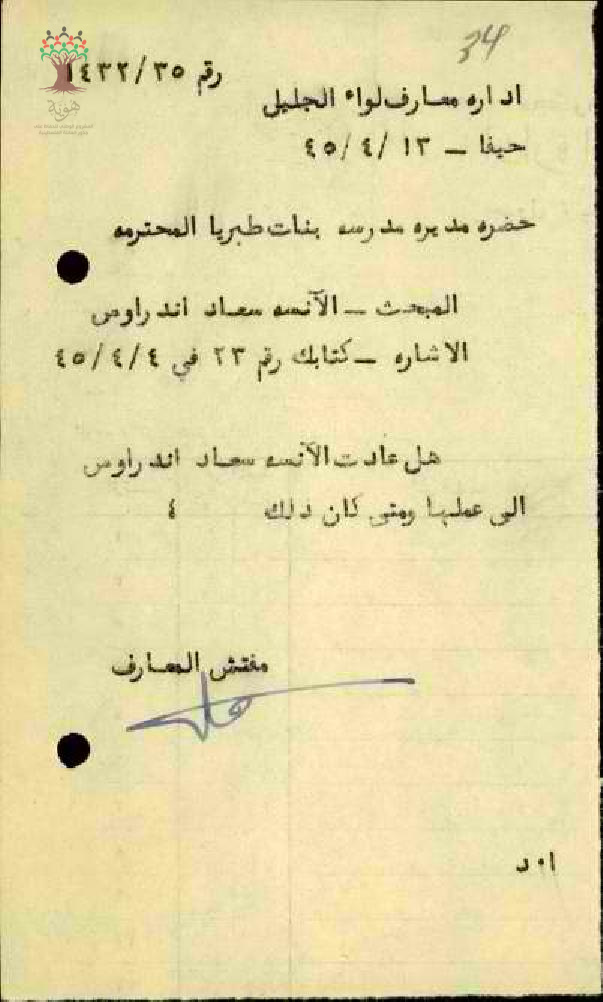 34
هوية
رقم ١٤٣٢/٣٥
اداره معارف لواء الجليل
حيفا – ١٣ /٤/ ٤٥
حضره مديره مدرسه بنات طبريا المحترمه
المبحث – الآنسه سعاد اندراوس
الاشاره – كتابك رقم ٢٣ في ٤/٤/ ٤٥
هل عادت الآنسه سعاد اندراوس
الى عملها ومتى كان ذلك ٤
مفتش المعارف
ا٠ د